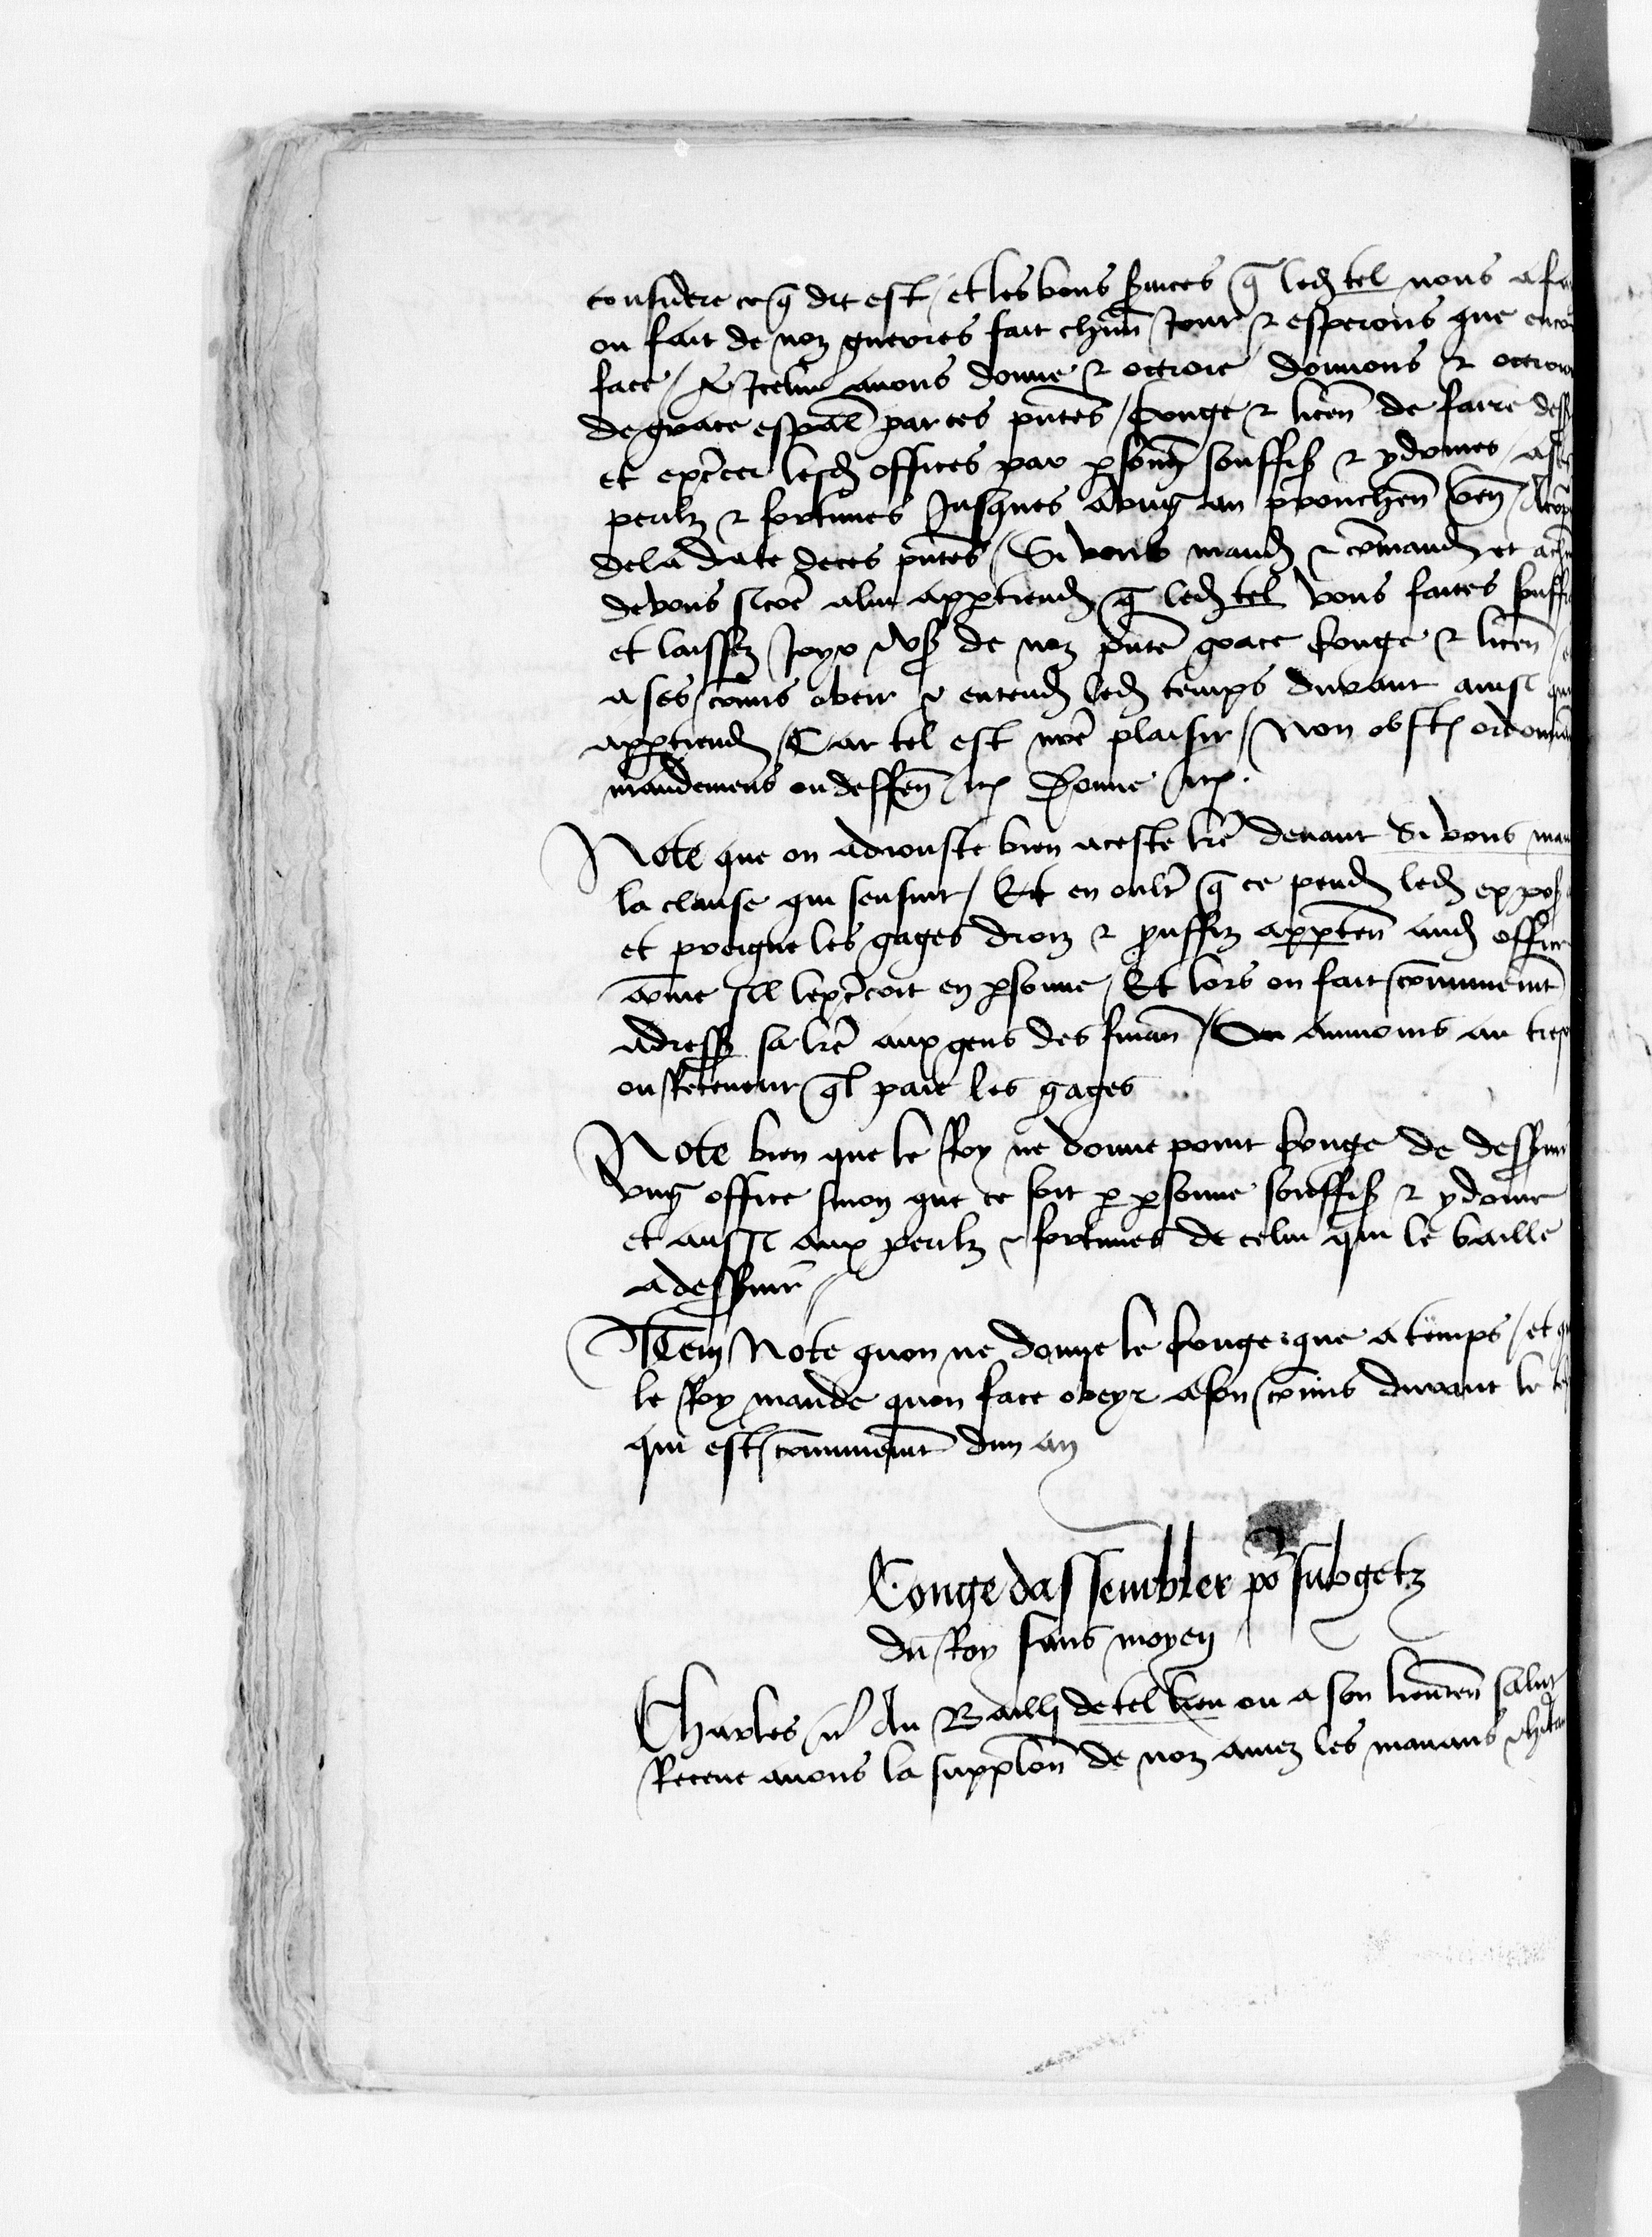 considere ce q̃ dit est / et les bons s̃uices q̃ led tel nous a fa
ou fait de noz guerres fait chũn Jour & esperons que enco
face / A Icelui auons donne & octroie donnons & octroi
de grace esp̃al par ces p̃ntes / conge & licen̄ de faire dess
et ex̃cer lesd offices par p̱sonn̄ souffiß & ydoines / a ses
perilz & fortunes Jusques a vng an prouchen̄ ven̄ /
de la date de ces p̃ntes / Si vous mand & com̄and et
de vous si cõe a lui app̱tiend q̃ led tel vous faites souff
et laissez Joyr vß de noz p̃nte grace conge & licen̄ /
a ses com̄is obeir & entend led temps durant ainsi
app̱tiend / Car tel est nr̃e plaisir / Non obst̃ ordonn
mandemens ou deffen̄ etc̃ Donne etc̃.
Note que on adiouste bien a ceste lr̃e deuant Si vous man
la clause qui sensuit / Et en oultr̃ q̃ ce pend led expoß
et preigne les gages droiz & prouffiz app̱ten̄ aud office
com̄e sil lex̃coit en p̱sonne / Et lors on fait commũemnt
adress̃ sa lr̃e aux gens des finan̄ / Ou aumoins au tres
ou Receueur q̃l paie les gages
Note bien que le Roy ne donne point conge de dess̃uir
vng office sinon que ce soit p̱ p̱sonne souffiß & ydoine
et aussi aux perilz & fortunes de celui qui le baille
a dess̃uir /
Item Note quon ne donne le conge que a temps / et q
le Roy mande quon face obeyr a son com̄is durant le
qui est commũemnt dun an
Conge dassembler po subgetz
du Roy sans moyen
Charles &c̃ Au Bailli de tel lieu ou a son lieuten̄ salut
Receue auons la suppl̃on de noz amez les manans & hab